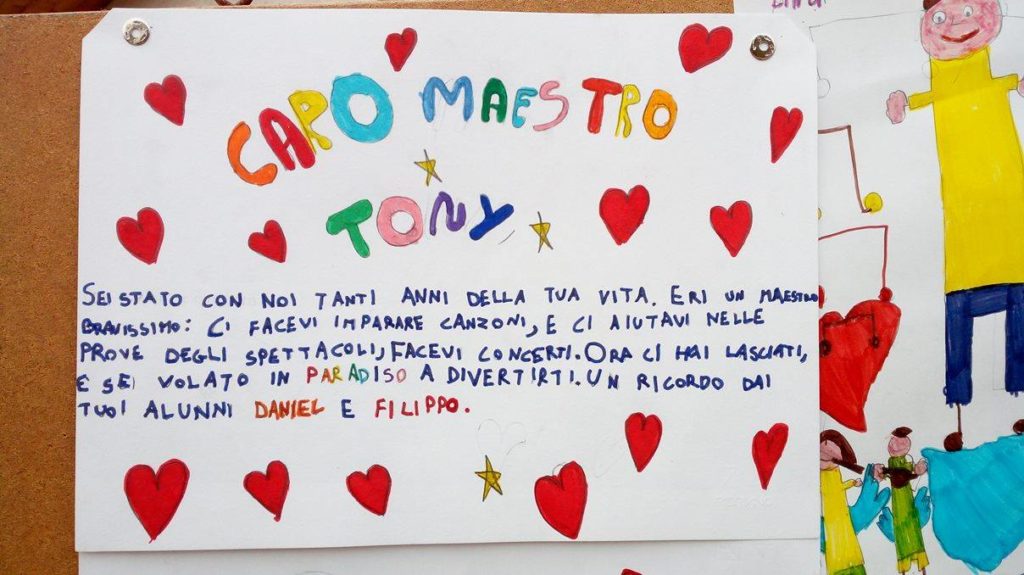 CARO MAESTRO
TONY
SEI STATO CON NOI TANTI ANNI DELLA TUA VITA. ERI UN MAESTRO
BRAVISSIMO: CI FACEVI IMPARARE CANZONI, E CI AIUTAVI NELLE
PROVE DEGLI SPETTACOLI, FACEVI CONCERTI. ORA CI HAI LASCIATI,
E SEI VOLATO IN PARADISO A DIVERTIRTI. UN RICORDO DAI
TUOI ALUNNI DANIEL E FILIPPO.